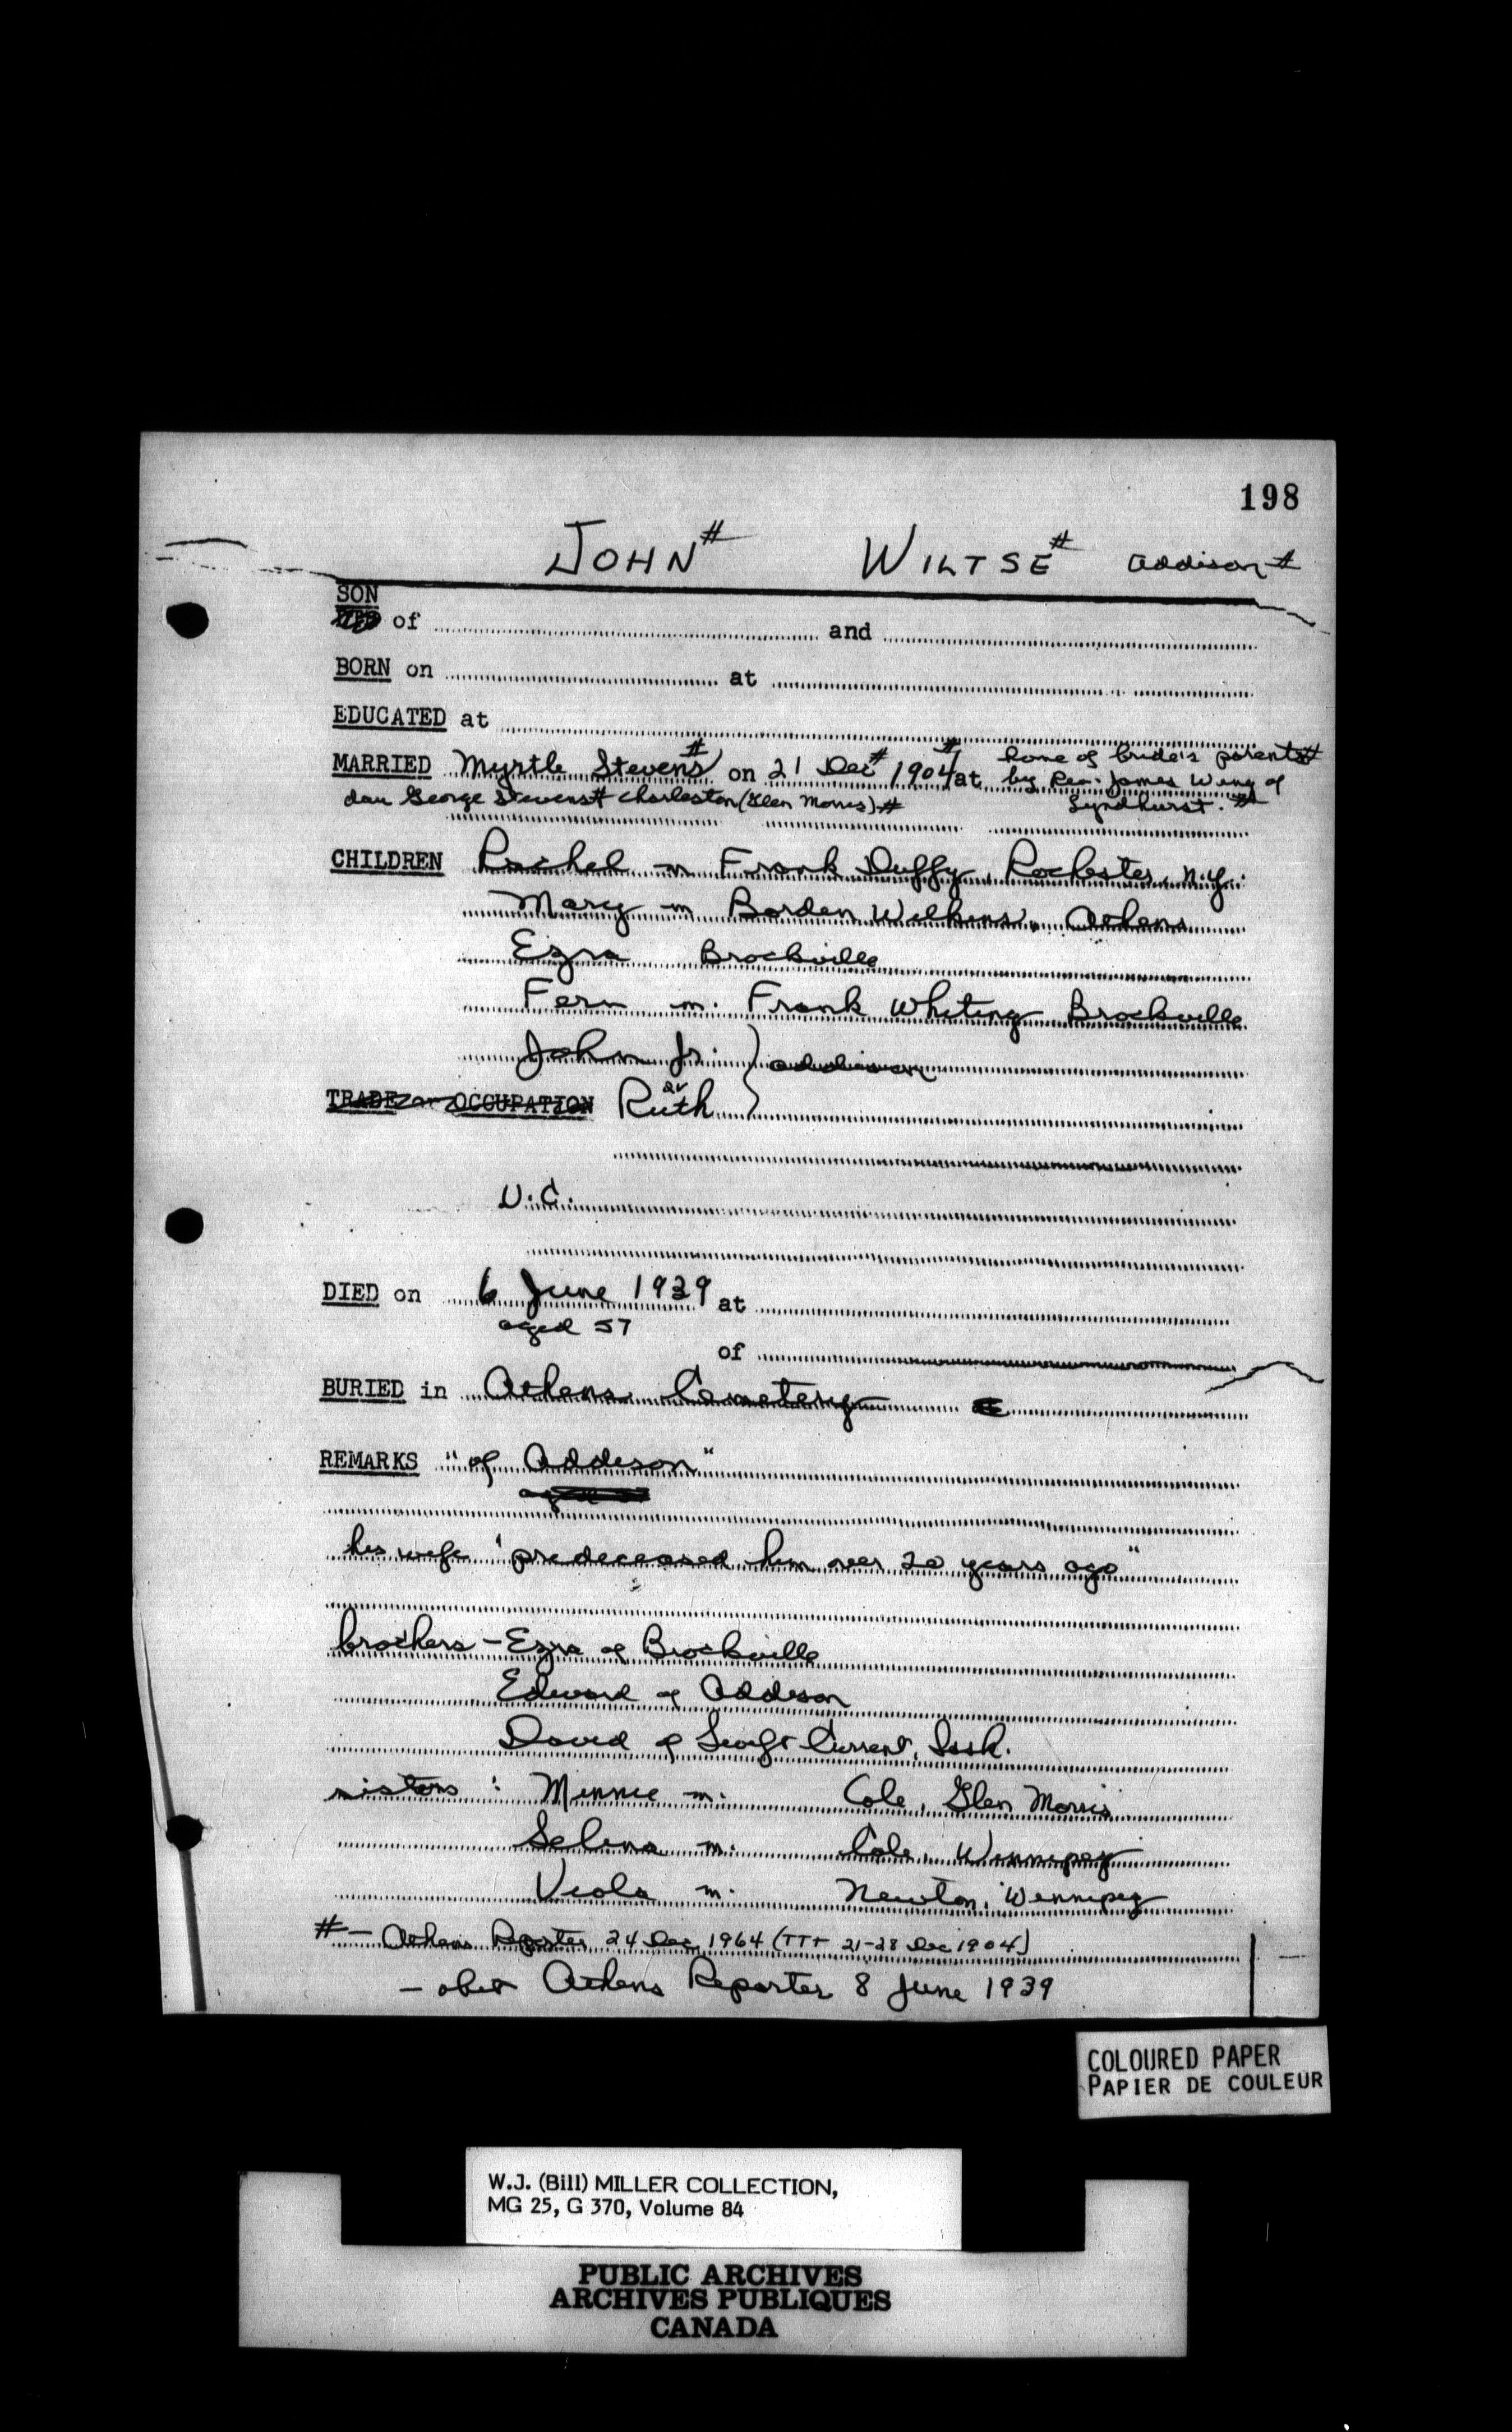 198
JOHN# WILTSE# Addison#
SON
of ........ and ........
BORN on ........ at ........
EDUCATED at ........
home of bride's parents#
MARRIED Myrtle Stevens# on 21 Dec# 1904# at by Rev. James Wing of
dau George Stevens# Charleston (Glen Morris)# Lyndhurst.#
CHILDREN Rachel m Frank Duffy, Rochester, N.Y.
Mary m Borden Wilkins, Athens
Ezra Brockville
Fern m. Frank Whiting Brockville
John Jr. } Addison
TRADE or OCCUPATION Ruth
U.C.
DIED on 6 June 1939 at ........
aged 57
of ........
BURIED in Athens Cemetery
REMARKS "of Addison"
his wife "predeceased him over 20 years ago"
brothers - Ezra of Brockville
Edward of Addison
David of Swift Current, Sask.
sisters : Minnie m. Cole, Glen Morris
Selina m. Cole, Winnipeg
Viola m. Newton, Winnipeg
# - Athens Reporter 24 Dec 1964 (TTT 21-28 Dec 1904)
- obit Athens Reporter 8 June 1939
COLOURED PAPER
PAPIER DE COULEUR
W.J. (Bill) MILLER COLLECTION,
MG 25, G 370, Volume 84
PUBLIC ARCHIVES
ARCHIVES PUBLIQUES
CANADA